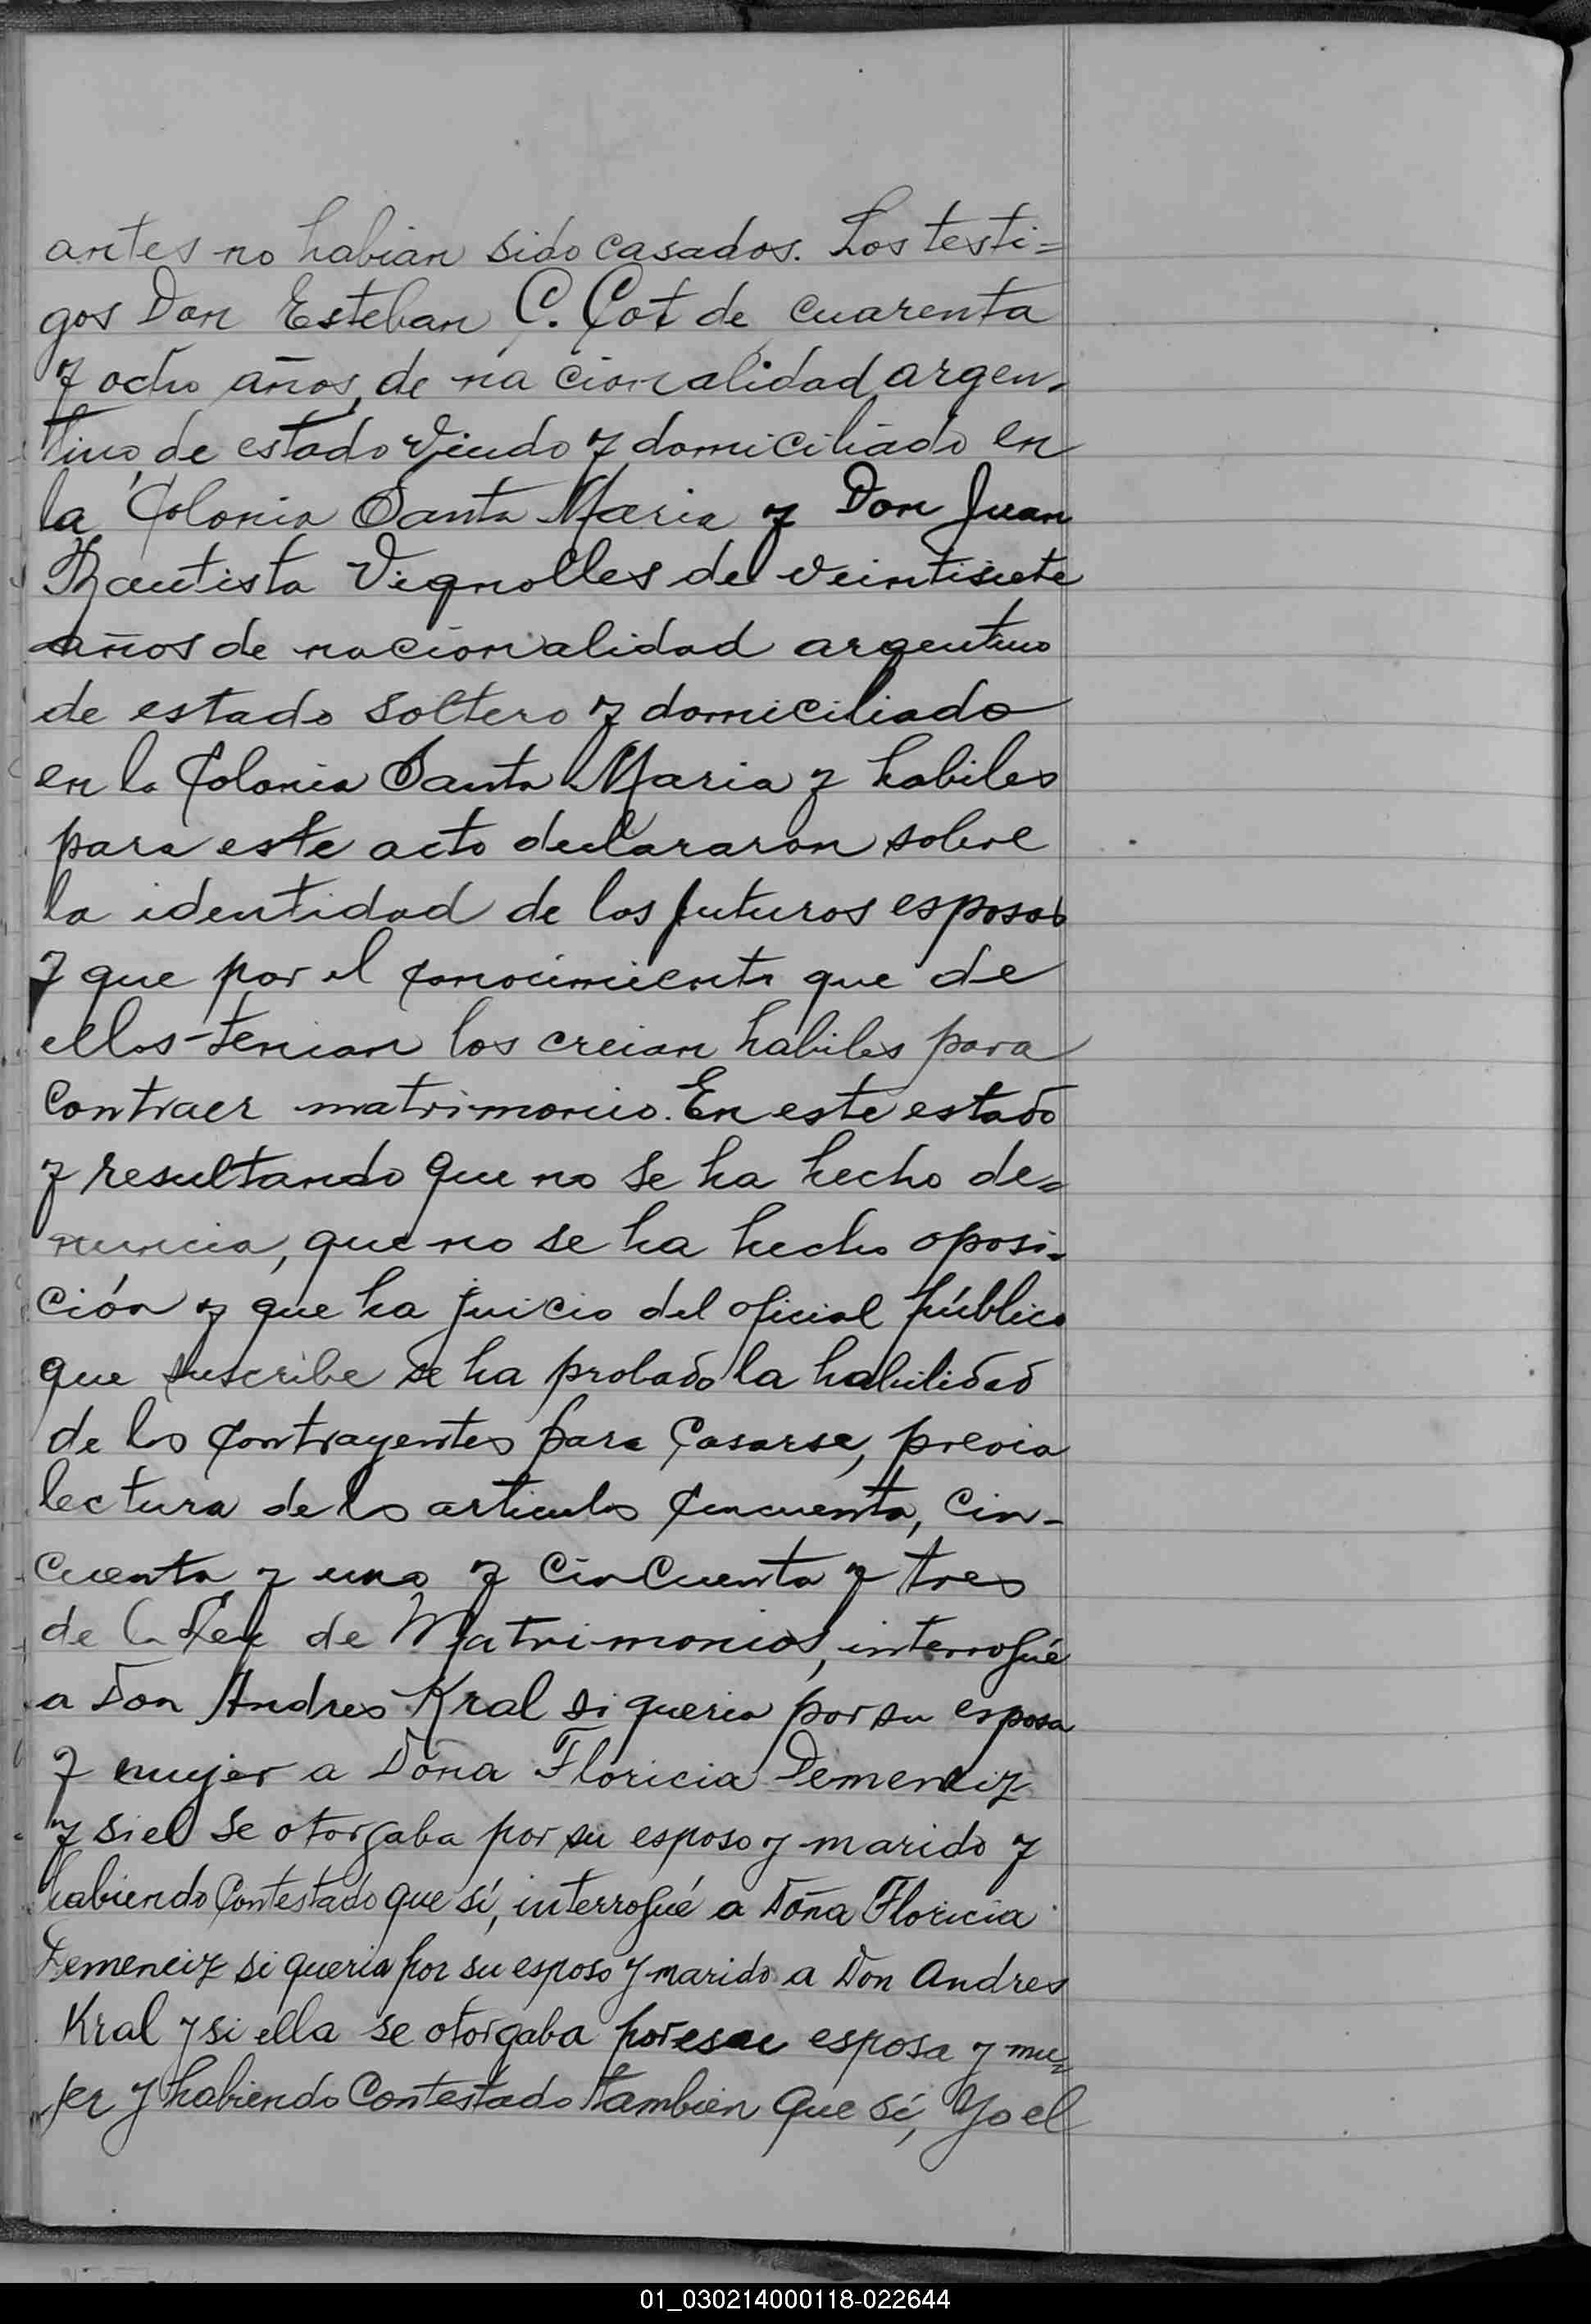 antes no habian sido casados. Los testi=
gos Don Esteban C. Cot de cuarenta
y ocho años, de nacionalidad argen-
tino, de estado viudo y domiciliado en
la Colonia Santa Maria y Don Juan
Bautista Vignolles de veintisiete
años de nacionalidad argentino
de estado soltero y domiciliado
en la Colonia Santa Maria y habiles
para este acto declararon sobre
la identidad de los futuros esposos
y que por el conocimiento que de
ellos tenian los creian habiles para
contraer matrimonio. En este estado
y resultando que no se ha hecho de=
nuncia, que no se ha hecho oposi-
ción y que ha juicio del oficial público
que suscribe se ha probado la habilidad
de los contrayentes para casarse, previa
lectura de los articulos cincuenta, cin-
cuenta y uno y cincuenta y tres
de la Ley de Matrimonios, interrogué
a Don Andres Kral si queria por su esposa
y mujer a Doña Floricia Demenciz
y si el se otorgaba por su esposo y marido y
habiendo contestado que sí, interrogué a Doña Floricia
Demenciz si queria por su esposo y marido a Don Andres
Kral y si ella se otorgaba por esposa y mu=
jer y habiendo contestado tambien que sí, Yo el
01_030214000118-022644